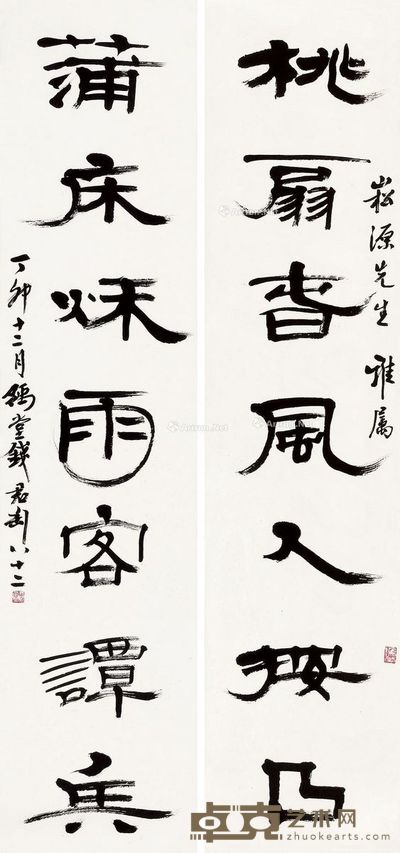 崧源先生 雅属
桃扇春風人按曲
蒲床秌雨客譚兵
丁卯十二月豫堂錢君匋八十二
卓克艺术网
zhuokearts.com